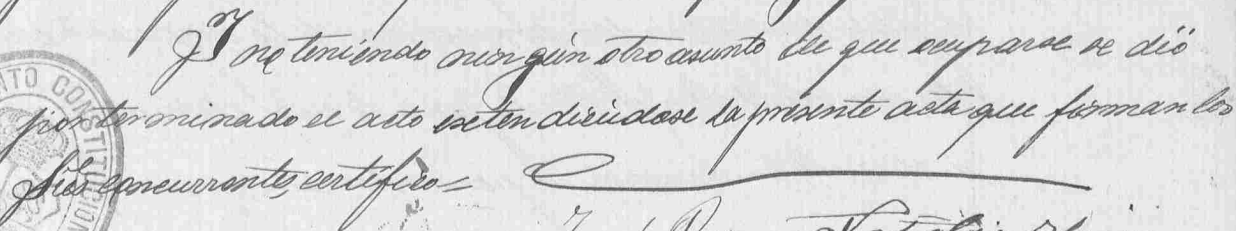 Y no teniendo ningún otro asunto de que ocuparse se dió
por terminado el acto extendiéndose la presente acta que forman los
Sres concurrentes, certifico=
NTO CONSTITUCIO